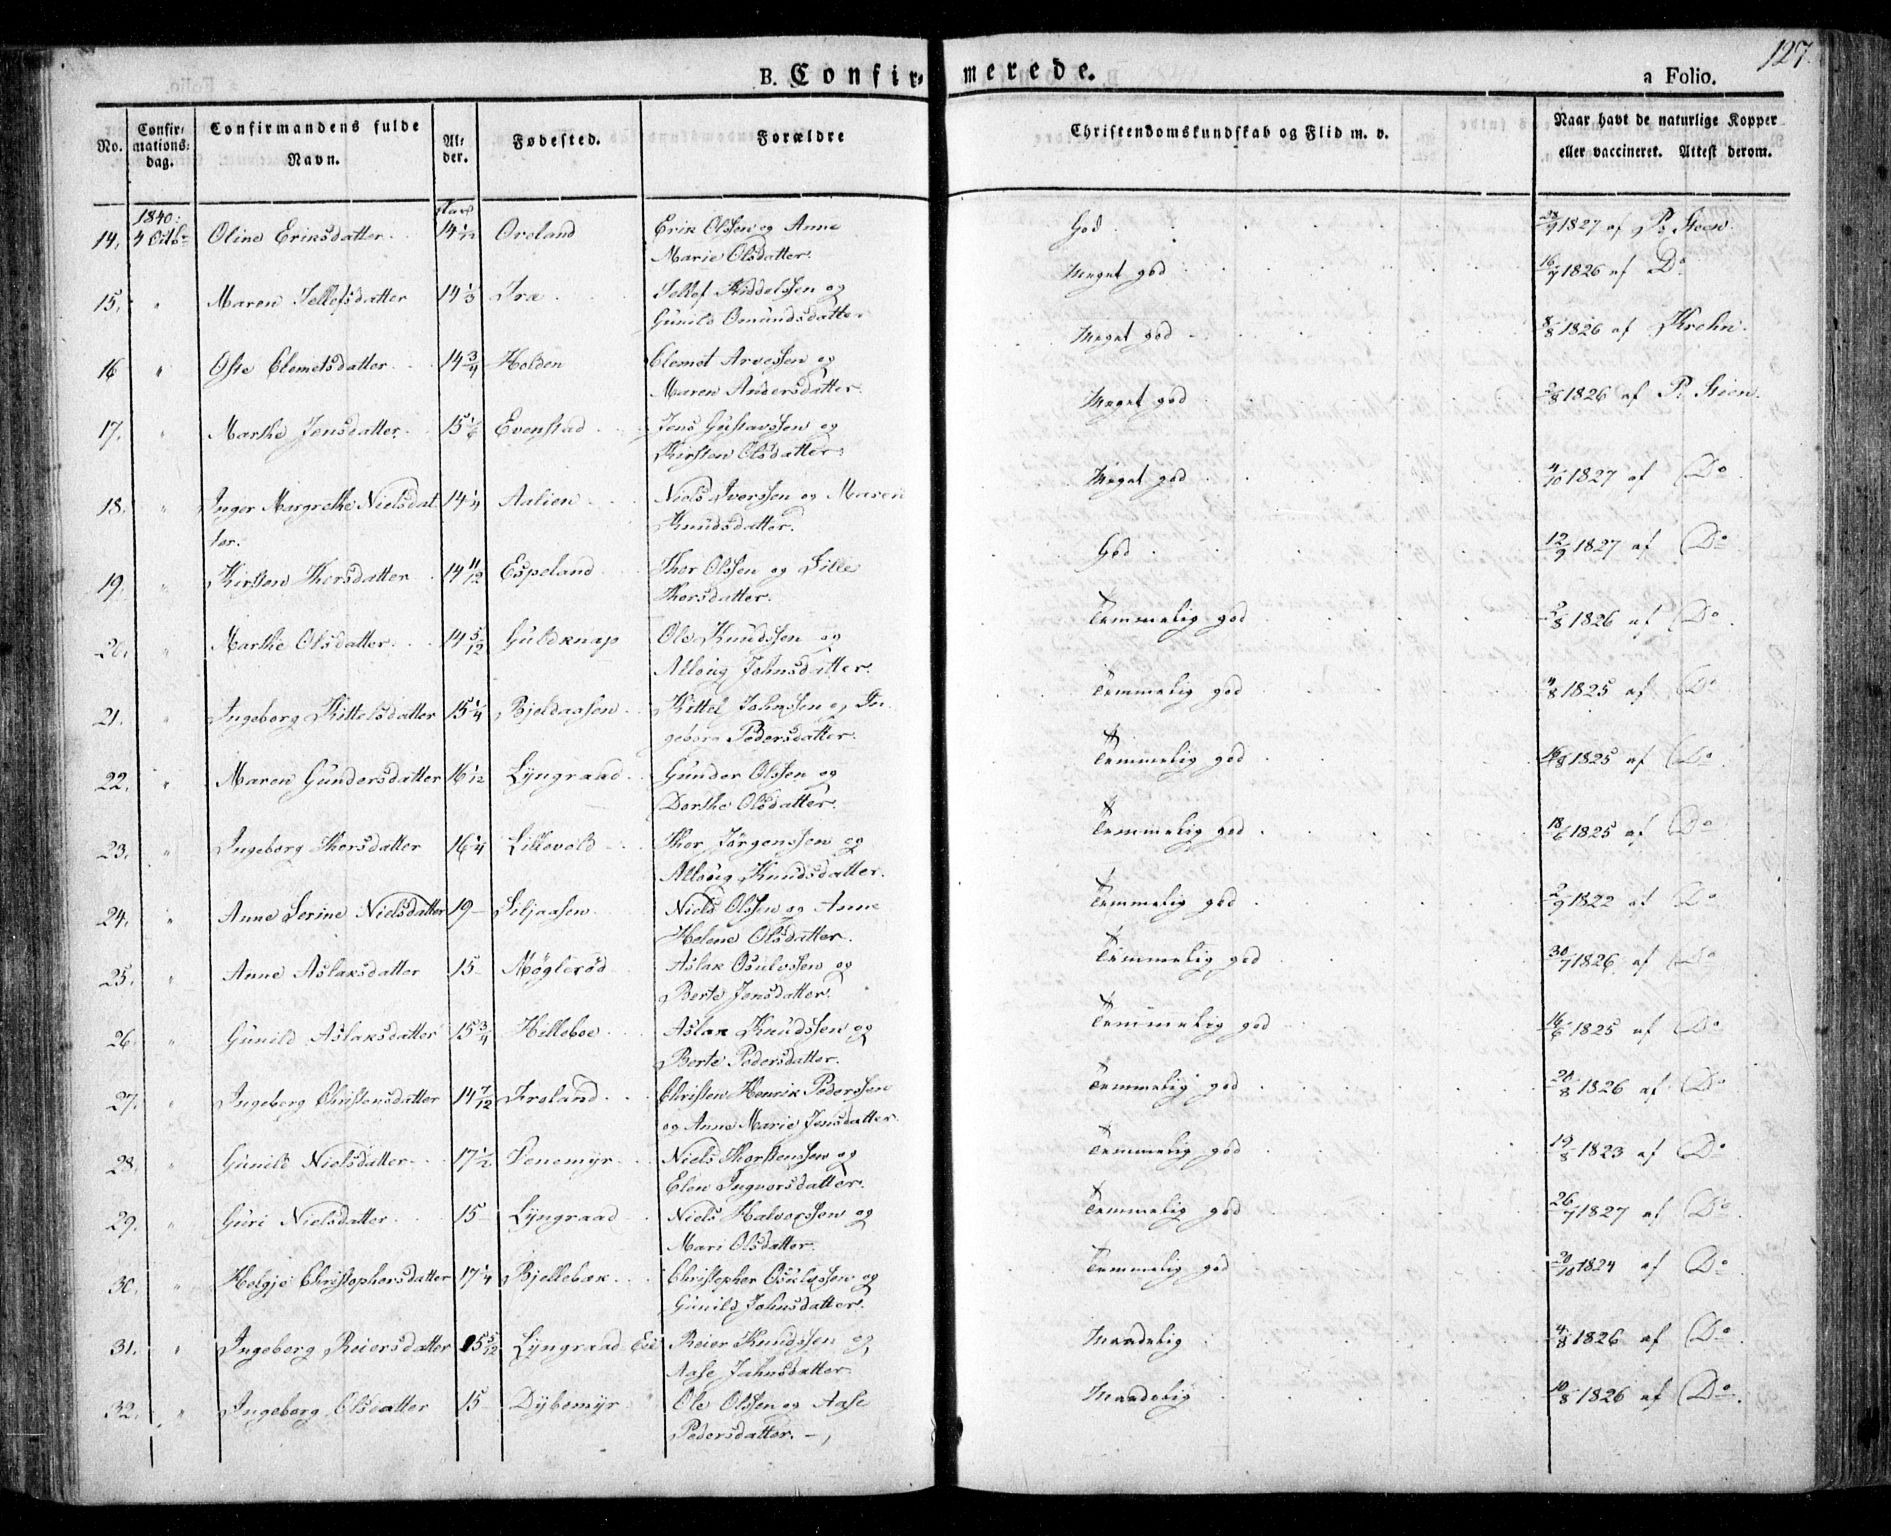 127.
B. Confirmerede.
a Folio.
No.
Confir-
mations-
dag.
Confirmandens fulde
Navn.
Al-
der.
Fødested.
Forældre
Christendomskundskab og Flid m. v.
Naar havt de naturlige Kopper
eller vaccineret. Attest derom.
1840.
14. 4 Octbr Oline Eriksdatter 14 1/12 Oreland Erik Olssen og Anne God 1827 af P. Steen.
Marie Olsdatter.
15. " Maren Tellefsdatter 14 1/3 Træ Tellef Niddelssen og Meget god 16/7 1826 af Do
Gunild Osmundsdatter
16 " Oste Clemetsdatter 14 3/4 Holden Clemet Arvessen og Meget god 8/8 1826 af Krehn.
Maren Andersdatter.
17. " Marthe Jensdatter. 15 1/6 Evenstad Jens Gustavssen og Meget god 1826 af P. Steen.
Kirsten Olsdatter.
18. " Inger Margrethe Nielsdat 14 1/4 Aalien Niels Iverssen og Maren Meget god 4/10 1827 af Do
ter. Knudsdatter.
19. " Kirsten Thorsdatter 14 11/12 Espeland Thor Olssen og Sille God 12/9 1827 af Do
Thorsdatter.
20. " Marthe Olsdatter 14 5/12 Guldknap Ole Knudssen og Temmelig god 2/8 1826 af Do
Alloug Johnsdatter.
21. " Ingeborg Kittelsdatter 15 1/4 Bjeldaasen Kittel Johnssen og In Temmelig god 4/8 1825 af Do
geborg Pedersdatter.
22. " Maren Gundersdatter 16 1/12 Lyngraad Gunder Olssen og Temmelig god 16/8 1825 af Do
Dorthe Olsdatter.
23. " Ingeborg Thorsdatter 16 1/4 Lillevold Thor Jørgenssen og Temmelig god 18/6 1825 af Do
Alloug Knudsdatter.
24. " Anne Serine Nielsdatter 19 Siljaasen Niels Olssen og Anne Temmelig god 2/9 1822 af Do
Helene Olsdatter.
25. " Anne Aslaksdatter 15 Møglerød Aslak Osulvssen og Temmelig god 30/7 1826 af Do
Berte Jensdatter.
26. " Gunild Aslaksdatter 15 3/4 Hilleboe Aslak Knudssen og Temmelig god 16/6 1825 af Do
Berte Pedersdatter.
27. " Ingeborg Christensdatter 14 7/12 Froland Christen Henrik Pederssen Temmelig god 20/8 1826 af Do
og Anne Marie Jensdatter.
28. " Gunild Nielsdatter 17 1/2 Niels Thorstenssen og Temmelig god 19/8 1823 af Do
Elen Ingvorsdatter.
29. " Guri Nielsdatter 15 Lyngraad Niels Halvorssen og Temmelig god 26/7 1827 af Do
Mari Olsdatter.
30. " Helgje Christophersdatter 17 1/4 Bjellebæk Christopher Osulvssen og Temmelig god 20/10 1824 af Do
Gunild Johnsdatter.
31. " Ingeborg Reiersdatter 15 5/12 Lyngraad Eie Reier Knudssen og Maadelig 4/8 1826 af Do
Aase Jahnsdatter
32. " Ingeborg Olsdatter 15 Dybemyr Ole Olssen og Aase Maadelig 10/8 1826 af Do
Pedersdatter.